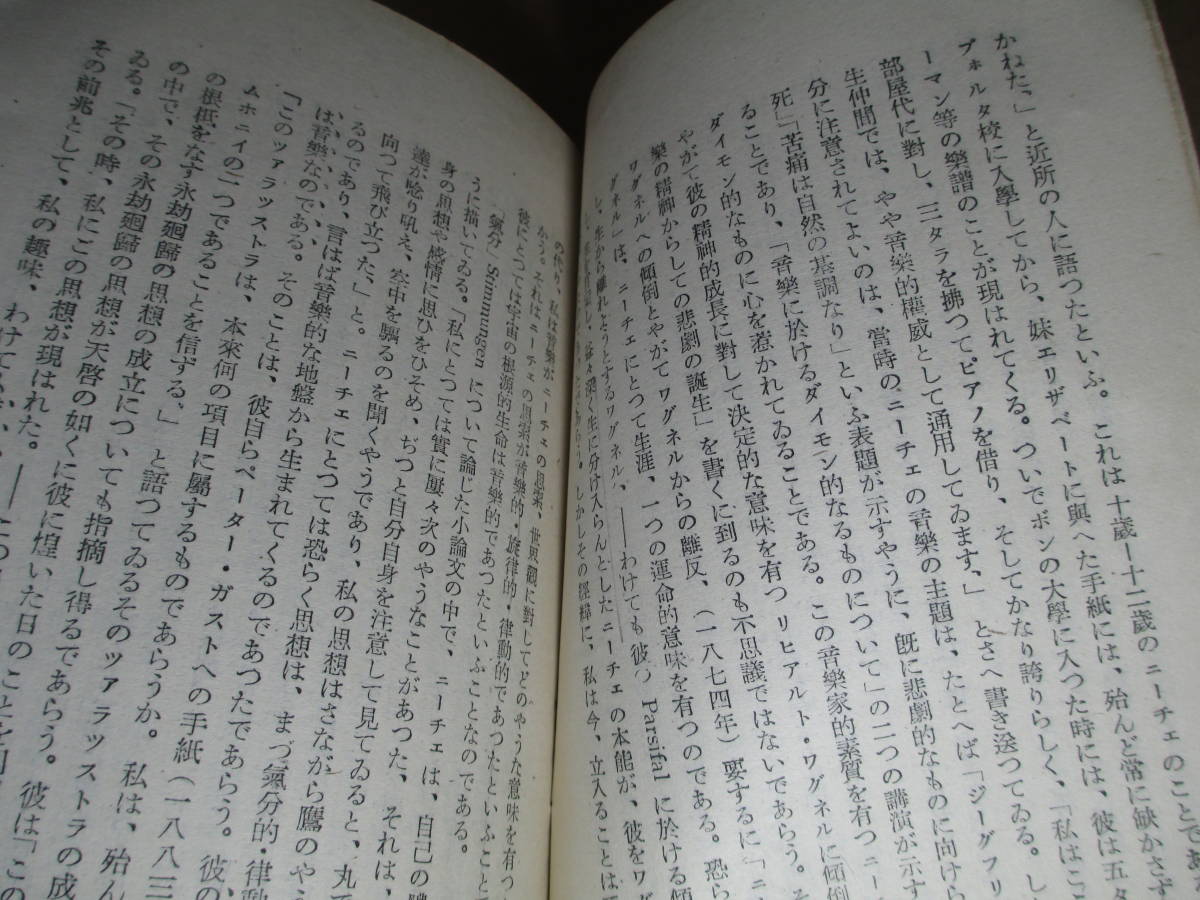 かねた。」と近所の人に語つたといふ。これは十歳―十二歳のニーチェのことである
プホルタ校に入學してから、妹エリザベートに與へた手紙には、殆んど常に缺かさず
ーマン等の樂譜のことが現はれてくる。ついでボンの大學に入つた時には、彼は五タ
部屋代に對し、三タラを拂つてピアノを借り、そしてかなり誇りらしく、「私はここ
生仲間では、やや音樂的權威として通用してゐます。」とさへ書き送つてゐる。し
分に注意されてよいのは、當時のニーチェの音樂の主題は、たとへば「ジーグフリ
死」「苦痛は自然の基調なり」といふ表題が示すやうに、既に悲劇的なものに向けら
ることであり、「音樂に於けるダイモン的なるものについて」の二つの講演が示す
ダイモン的なものに心を惹かれてゐることである。この音樂家的素質を有つニー
やがて彼の精神的成長に對して決定的な意味を有つリヒアルト・ワグネルに傾倒
樂の精神からしての悲劇の誕生」を書くに到るのも不思議ではないであらう。そ
ワグネルへの傾倒とやがてワグネルからの離反、(一八七四年)要するに「ニ
グネル」は、ニーチェにとつて生涯、一つの運命的意味を有つのである。恐ら
し、生から離れようとするワグネル、――わけても彼の Parsifal に於ける傾
深く生に分け入らんとしたニーチェの本能が、彼をワグ
しかしその經緯に、私は今、立入ることは
私は音樂がニーチェの思索、世界觀に對してどのやうな意味を有つ
かう。それはニーチェの思索が音樂的・旋律的・律動的であつたといふこと
彼にとつては宇宙の根源的生命は音樂的であつたといふことなのである。
「氣分」Simmungen について論じた小論文の中で、ニーチェは、自己の
うに描いてゐる。「私にとつては實に屢々次のやうなことがあつた、それは、
身の思想や感情に思ひをひそめ、ぢつと自分自身を注意して見てゐると、丸
達が唸り吼え、空中を驅るのを聞くやうであり、私の思想はさながら鷹のやう
向つて飛び立つた。」と。ニーチェにとつては恐らく思想は、まづ氣分的・律動
るのであり、言はば音樂的な地盤から生まれてくるのであつたであらう。彼の
は音樂なのである。そのことは、彼自らペーター・ガストへの手紙(一八八三
「このツァラツストラは、本來何の項目に屬するものであらうか。私は、殆ん
ムホニイの二つであることを信ずる。」と語つてゐるそのツァラツストラの成
の根柢をなす永劫廻歸の思想の成立についても指摘し得るであらう。彼は「この
の中で、その永劫廻歸の思想が天啓の如くに彼に煌いた日のことを
ゐる。「その時、私にこの思想が現はれた。――
その前兆として、私の趣味、わけても